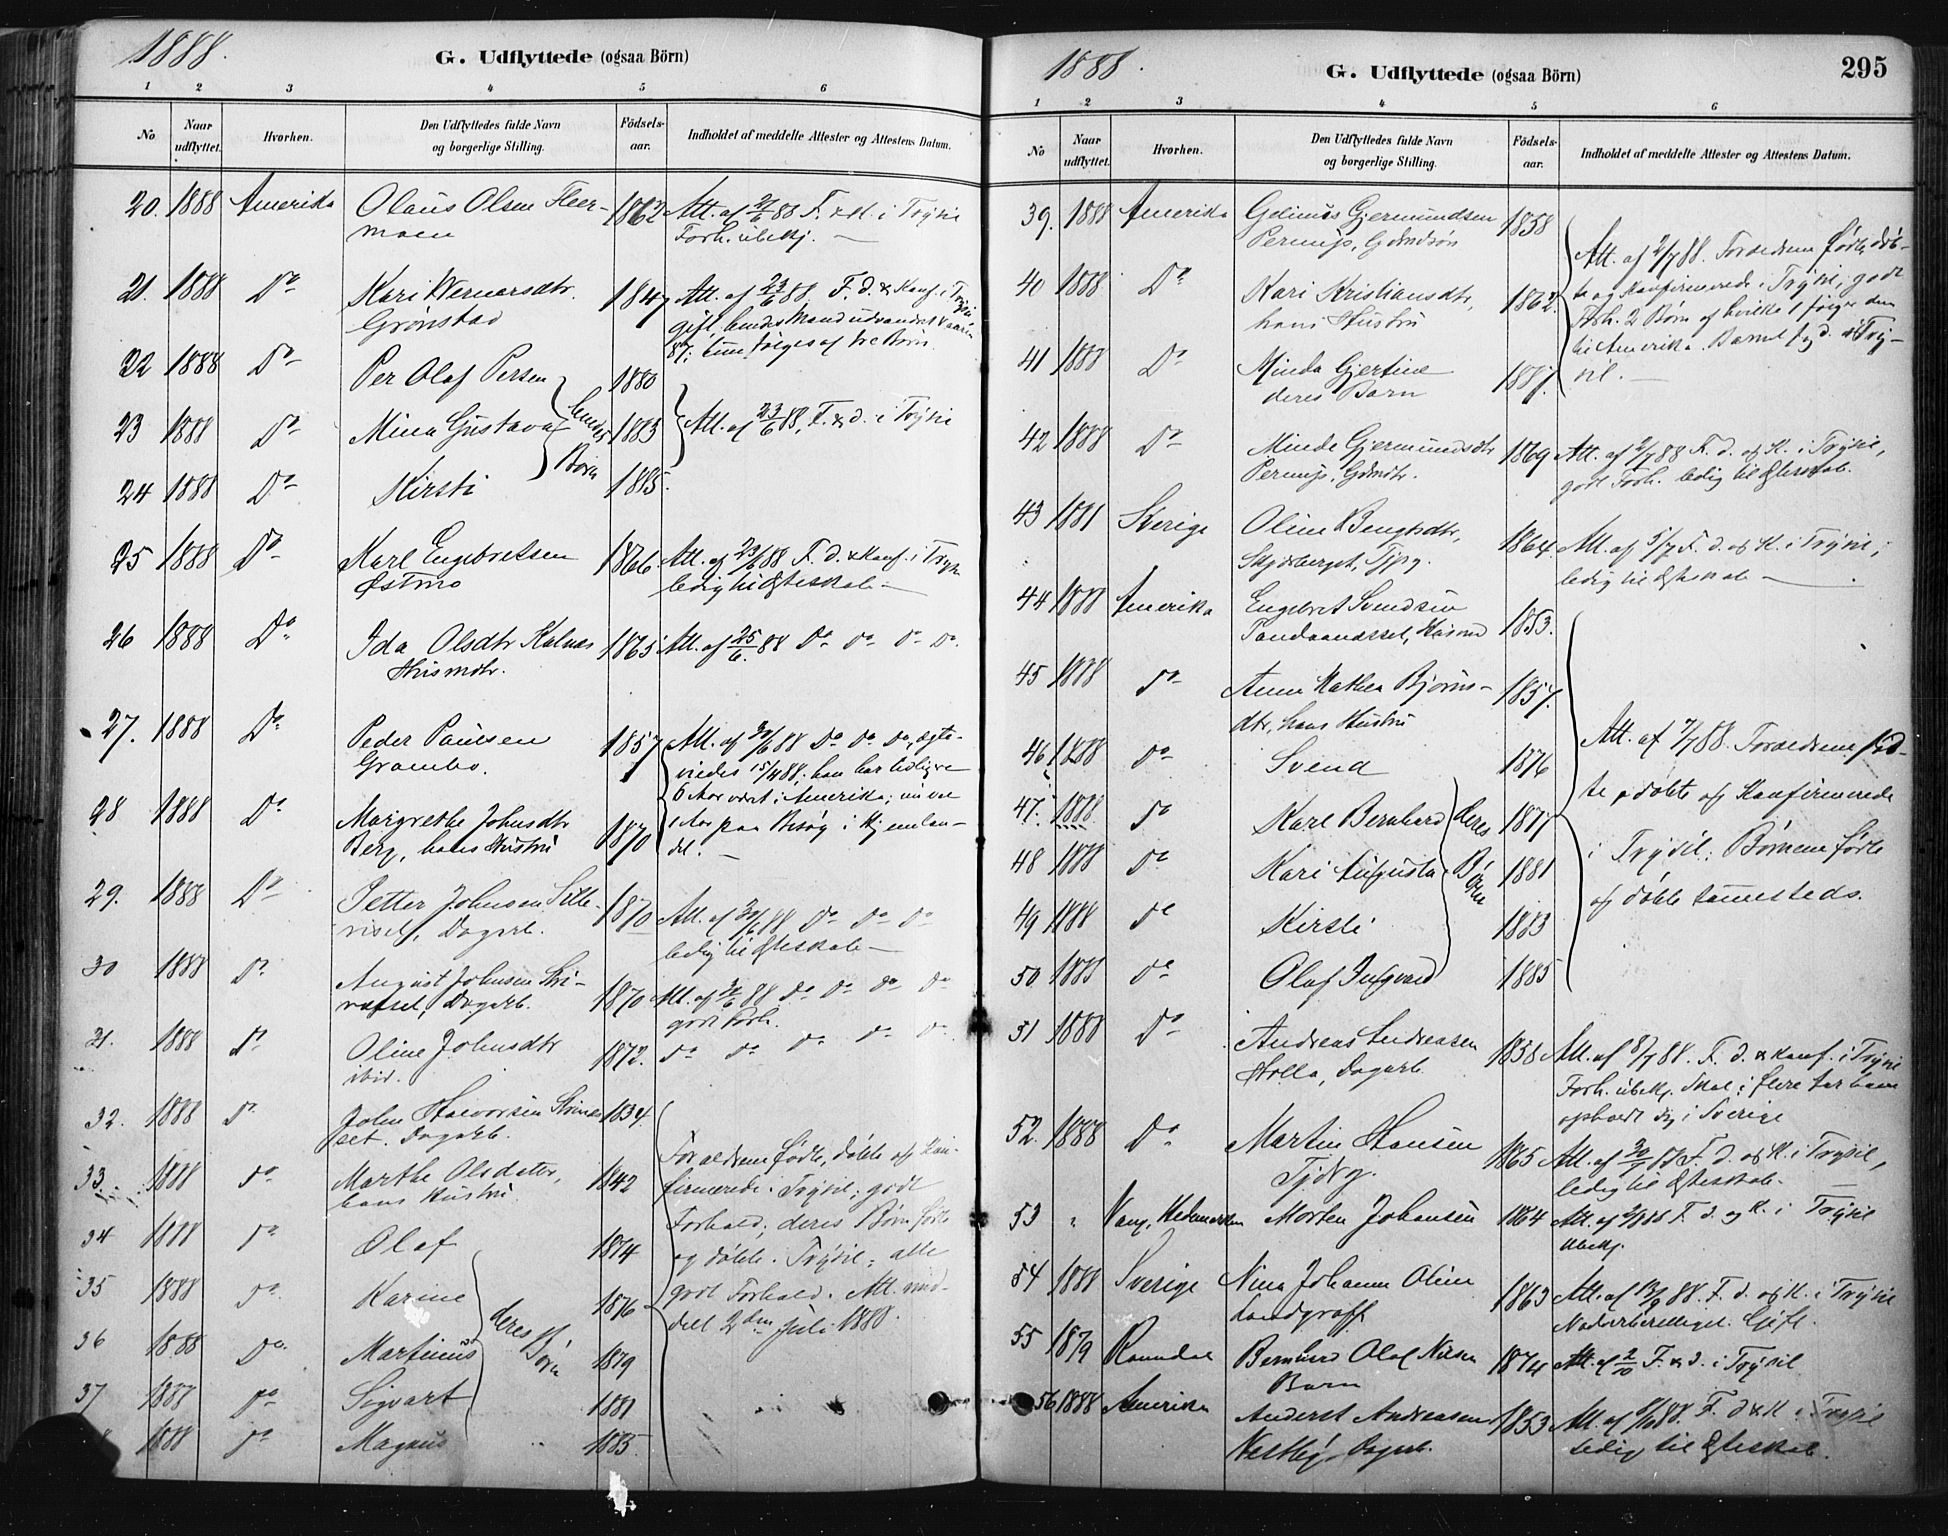 1888.
G. Udflyttede (ogsaa Börn)
1 2 3 4 5 6
No
Naar udflyttet.
Hvorhen.
Den Udflyttedes fulde Navn og borgerlige Stilling.
Födsels-aar.
Indholdet af meddelte Attester og Attestens Datum.
20. 1888 Amerika Olaus Olsen 1862 Att. af 88 F. & d. i Trysil
Forh. ubekj. —
21. 1888 Do Kari Wernersdtr. 1847 Att. af 23/6 88. F. d. & Konf. i Trysil
Grønstad gift, hendes Mand udvandret
87; hun følges af tre Børn.
22 1888 Do Per Olaf Persen 1880
23 1888 Do Mina Gustava hendes 1883 Att. af 23/6 88, F. & d. i Trysil
Børn
24 1888 Do Kirsti 1885.
25 1888 Do Karl Engebretsen 1866 Att. af 23/6 88 F. d. & Konf. i Trysil
Østmo ledig til Ægteskab —
26 1888 Do Ida Olsdtr Kolnæs 1865 Att. af 25/6 88 Do Do Do Do
Husmdtr.
27. 1888 Do Peder Paulsen 1857 Att. af 30/6 88 Do Do Do, ægte-
Grambo. viedes 15/4 88; han har tidligere
6 Aar været i Amerika; nu var
28 1888 Do Margrethe Johnsdtr 1870 1 Aar paa Besøg i Hjemlan-
Berg, hans Hustru det. —
29. 1888 Do Petter Johnsen 1870 Att. af 30/6 88 Do Do Do
Dagarb. ledig til Ægteskab —
30 1888 Do August Johnsen 1870 Att. af 88 Do Do Do Do
Dagarb. godt Forh.
31. 1888 Do Oline Johnsdtr 1872. Do Do Do Do Do
ibid.
32. 1888 Do John Halvorsen 1834
Dagarb. Forældrene fødte, døbte og Kon-
33. 1888 Do Marthe Olsdatter, 1842 firmerede i Trysil; godt
hans Hustru Forhold; deres Børn fødte
34 1888 Do Olaf 1874 og døbte i Trysil; alle
35 1888 Do Karine 1876 godt Forhold. Att. med-
deres Børn delt 2den Juli 1888.
36 1888 Do Martinus 1879
37 1888 Do Sigvart 1881
8 1888 Do Magnus 1885
1888.
G. Udflyttede (ogsaa Börn)
295
1 2 3 4 5 6
No
Naar udflyttet.
Hvorhen.
Den Udflyttedes fulde Navn og borgerlige Stilling.
Födsels-aar.
Indholdet af meddelte Attester og Attestens Datum.
39. 1888 Amerika Gjermundsen 1858
Att. af 2/7 88. Forældrene fødte, døb-
40 1888 Do Kari Kristiansdtr, 1862. te og Konfirmerede i Trysil; godt
hans Hustru Forh. 2 Børn af hvilke 1 følger dem
41 1888 Do Minda Gjertine 1887. til Amerika. Barnet f. & d. i Try-
deres Barn sil. —
42 1888 Do Minda Gjermundsdtr 1869 Att. af 2/7 88 F. d. og K. i Trysil,
godt Forh. ledig til Ægteskab.
43 1881 Sverige Oline Bengtsdtr, 1864. Att. af 5/7 F. d. og K. i Trysil;
Tjpg. ledig til Ægteskab —
44 1888 Amerika Engebret Svendsen 1853.
45 1888 Do Anne Mathea Bjørns- 1857.
dtr, hans Hustru
46 1888 Do Svend 1876 Att. af 7/7 88. Forældrene fød-
47. 1888 Do Karl Bernhard deres 1877 te, døbte og Konfirmerede
48 1888 Do Kari Augusta Børn 1881 i Trysil; Børnene fødte
49 1888 Do Kirsti 1883 og døbte sammesteds.
50 1888 Do Olaf Ingvard 1885
51 1888 Do Andreas Andreasen 1858 Att. af 8/7 88. F. d. & Konf. i Trysil
Holla, Dagarb. Forh. ubekj. Skal i flere Aar have
opholdt sig i Sverige
52. 1888 Do Martin Hansen 1865 Att. af F. d. og K. i Trysil,
ledig til Ægteskab.
53 " Vang, Hedemarken Morten Johansen 1864 Att. af F. d. og K. i Trysil
Ubekj.
54 1888 Sverige Nina Johanne Oline 1863 Att. af 13/9 88. F. d. og K. i Trysil
Landgraff Nadverberettiget. Gift.
55 1879 Bernhard Olaf Nilsen 1874 Att. af 2/10 F. & d. i Trysil
Barn
56 1888 Amerika Anderst Andreasen 1853 Att. af 88. F. d & K. i Trysil
Vestby Dagarb. ledig til Ægteskab.